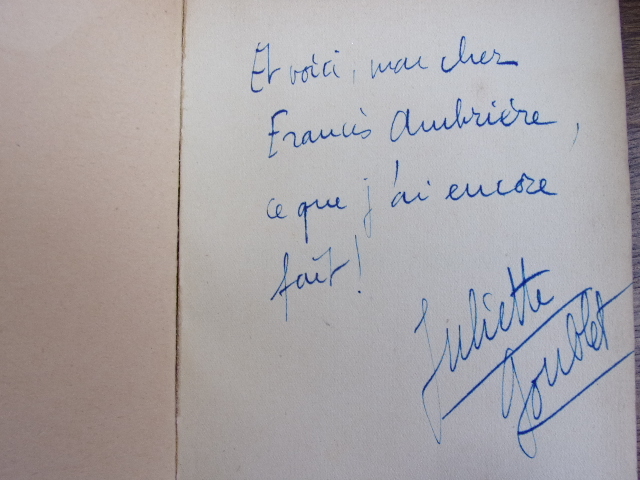 Et voici, mon cher
Francis Ambrière,
ce que j'ai encore
fait !
Juliette
Goublet